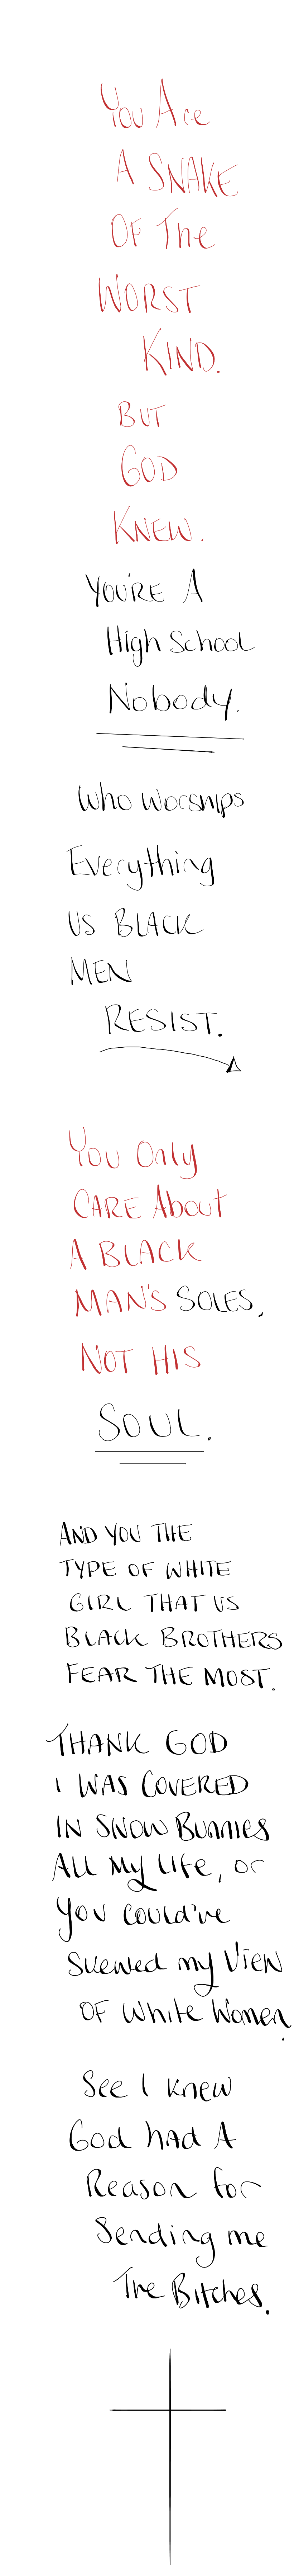 You Are
A SNAKE
OF The
WORST
KIND.
BUT
GOD
KNEW.
YOU'RE A
High School
Nobody.
Who Worships
Everything
US BLACK
MEN
RESIST.
You Only
CARE About
A BLACK
MAN'S SOLES,
NOT HIS
SOUL.
AND YOU THE
TYPE OF WHITE
GIRL THAT US
BLACK BROTHERS
FEAR THE MOST.
THANK GOD
I WAS COVERED
IN SNOW BUNNIES
ALL My LIFE, or
you could've
skewed my VIEW
OF White Women.
See I knew
God had A
Reason for
Sending me
The Bitches.